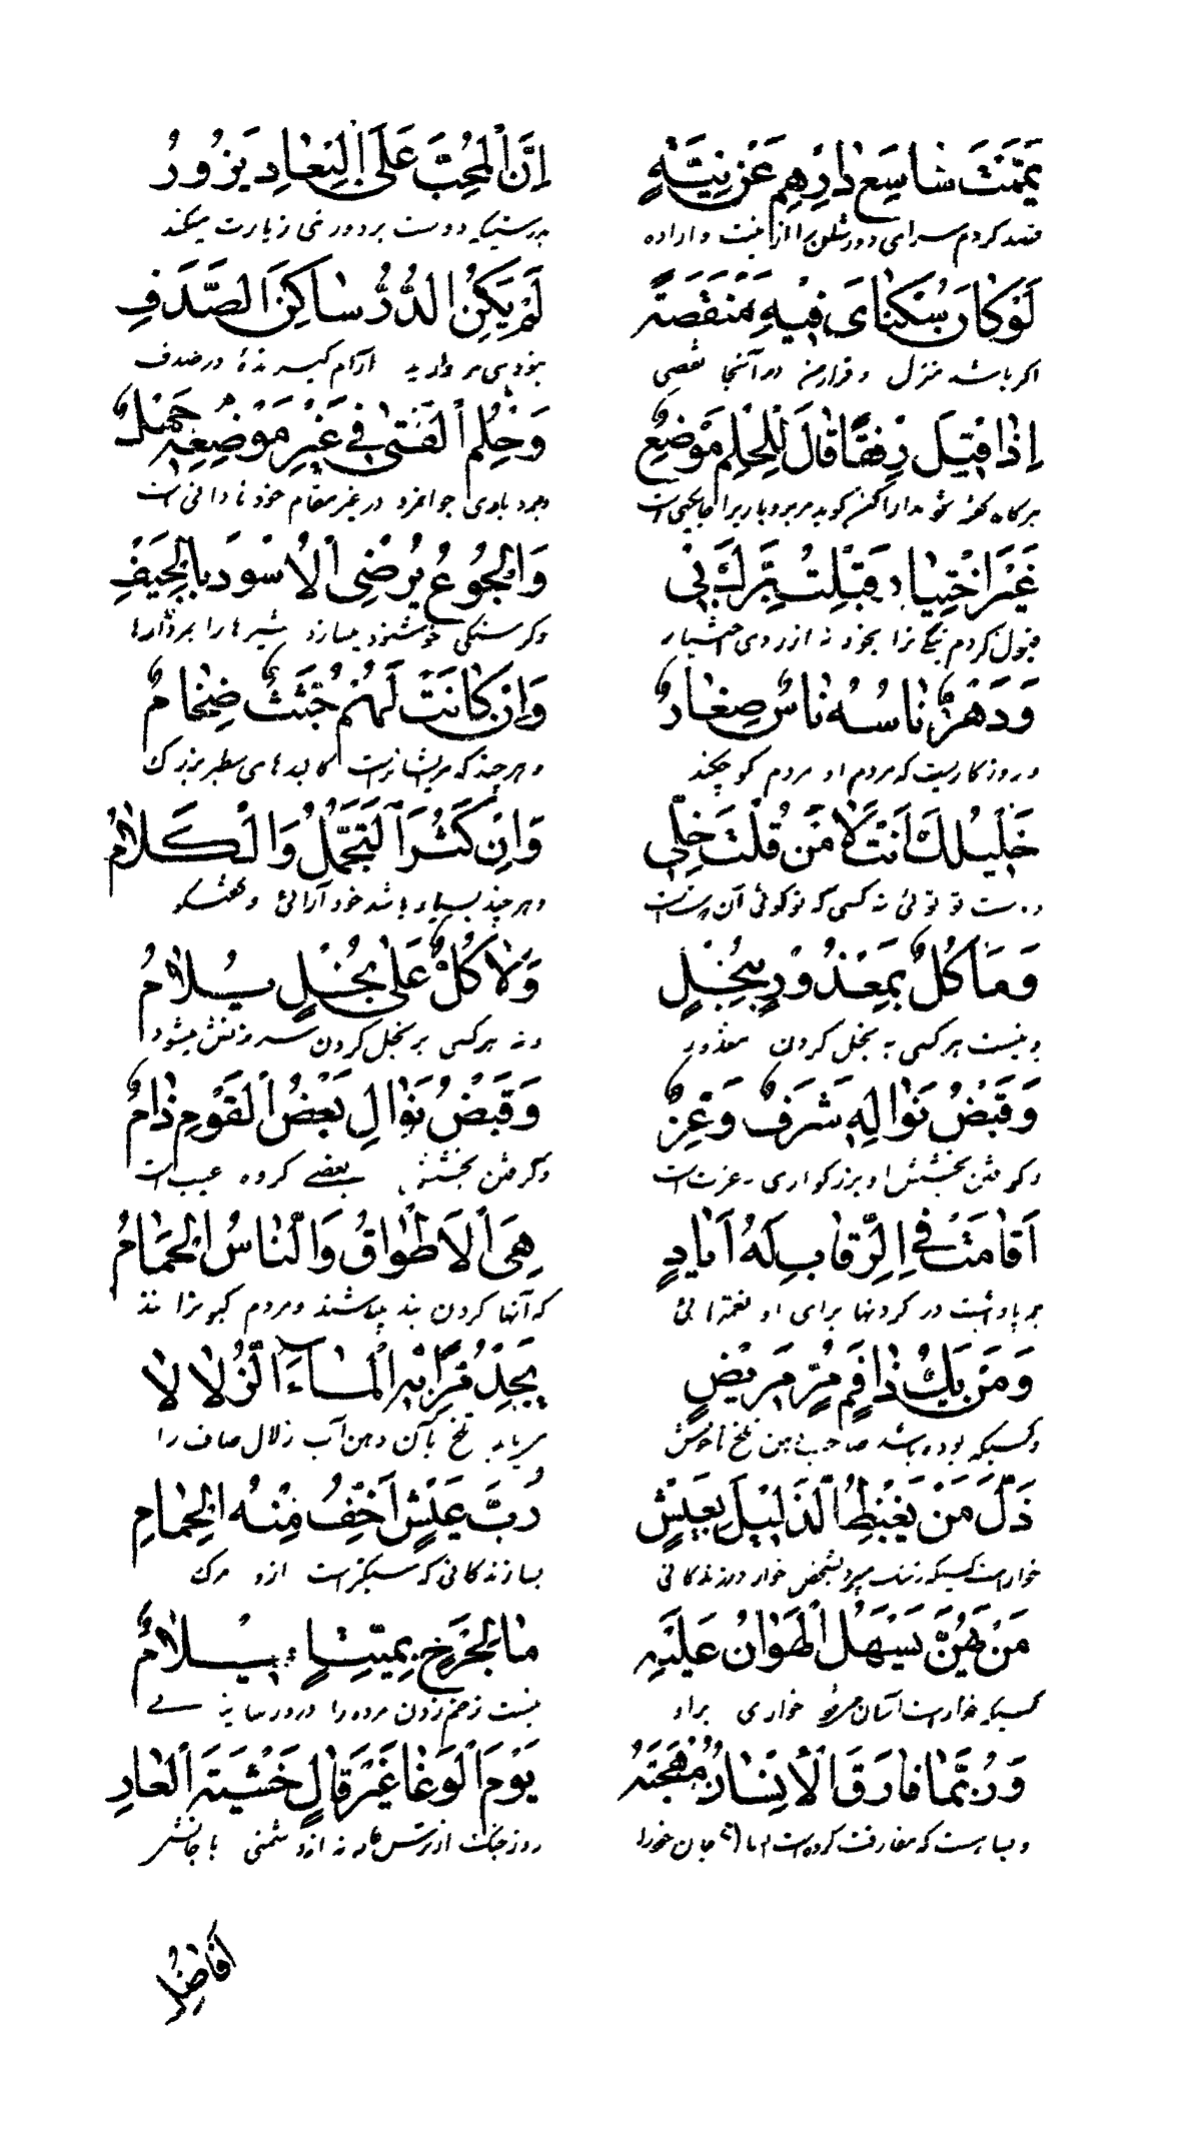 یَمَّمْتُ شاسِعَ دارِهِمْ عَنْ نِیَّةٍ اِنَّ الْمُحِبَّ عَلَی الْبِعادِ یَزُورُ
قصد کردم سرای دورشان را از نیت و اراده بدرستیکه دوست بر دوری زیارت میکند
لَوْ کانَ سُکْنایَ فیهِ مَنْقَصَةً لَمْ یَکُنِ الدُّرُّ ساکِنَ الصَّدَفِ
اکر باشد منزل و قرار من در آنجا نقصی نبودی مروارید آرام کیرنده در صدف
اِذا قیلَ رِفْقًا قالَ لِلْحِلْمِ مَوْضِعٌ وَحِلْمُ الْفَتی فی غَیْرِ مَوْضِعِهِ جَهْلٌ
هرکاه کفته شود مدارا کن کوید مر بردباری را جایکهی است و بردباری جوانمرد در غیر مقام خود نادانی است
غَیْرَ اخْتِیارٍ قَبِلْتُ بِرَّكَ بی وَالْجُوعُ یُرْضِی الْاُسُودَ بِالْجِیَفِ
قبول کردم نیکی ترا بخود نه از روی اختیار و کرسنکی خوشنود میسازد شیرها را بمردارها
وَدَهْرٌ ناسُهُ ناسٌ صِغارٌ وَاِنْ کانَتْ لَهُمْ جُثَثٌ ضِخامٌ
و روزکاریست که مردم او مردم کوچکند و هرچند که مر ایشانراست کالبدهای سطبر بزرک
خَلیلُكَ اَنْتَ لا مَنْ قُلْتَ خِلّی وَاِنْ کَثُرَ التَّجَمُّلُ وَالْکَلامُ
دوست تو توئی نه کسی که تو کوئی آن و هرچند بسیار باشد خود آرائی و کفتکو
وَما کُلٌّ بِمَعْذُورٍ بِبُخْلٍ وَلا کُلٌّ عَلی بُخْلٍ یُلامُ
و نیست هر کسی به بخل کردن معذور و نه هر کسی بر بخل کردن سرزنش میشود
وَقَبْضُ نَوالِهِ شَرَفٌ وَعِزٌّ وَقَبْضُ نَوالِ بَعْضِ الْقَوْمِ ذامٌ
و کرفتن بخشش او بزرکواری و عزت است و کرفتن بخشش بعضی کروه عیب است
اَقامَتْ فِی الرِّقابِ لَهُ اَیادٍ هِیَ الْاَطْواقُ وَالنّاسُ الْحَمامُ
برپا داشت در کردنها برای او نعمتهائی که آنها کردن بند میباشند و مردم کبوترانند
وَمَنْ یَكُ ذا فَمٍ مُرٍّ مَریضٍ یَجِدْ مُرًّا بِهِ الْماءَ الزُّلالا
و کسیکه بوده باشد صاحب دهن تلخ ناخوش مییابد تلخ بآن دهن آب زلال صاف را
ذَلَّ مَنْ یَغْبِطُ الذَّلیلَ بِعَیْشٍ رُبَّ عَیْشٍ اَخَفُّ مِنْهُ الْحِمامُ
خوار است کسیکه رشک میبرد شخص خوار در زندکانی بسا زندکانی که سبکتر است ازو مرک
مَنْ یَهُنْ یَسْهُلِ الْهَوانُ عَلَیْهِ ما لِجُرْحٍ بِمَیِّتٍ ایلامٌ
کسیکه خوار است آسان میشود خواری براو نیست زخم زدن مرده را دردرسانیدنی
وَرُبَّما فارَقَ الْاِنْسانُ مُهْجَتَهُ یَوْمَ الْوَغا غَیْرَ قالٍ خَشْیَةَ الْعارِ
و بسا هست که مفارقت کرده است آدمی جان خود را روز جنک از ترس عار نه از دشمنی با جانش
اَفاضِلُ